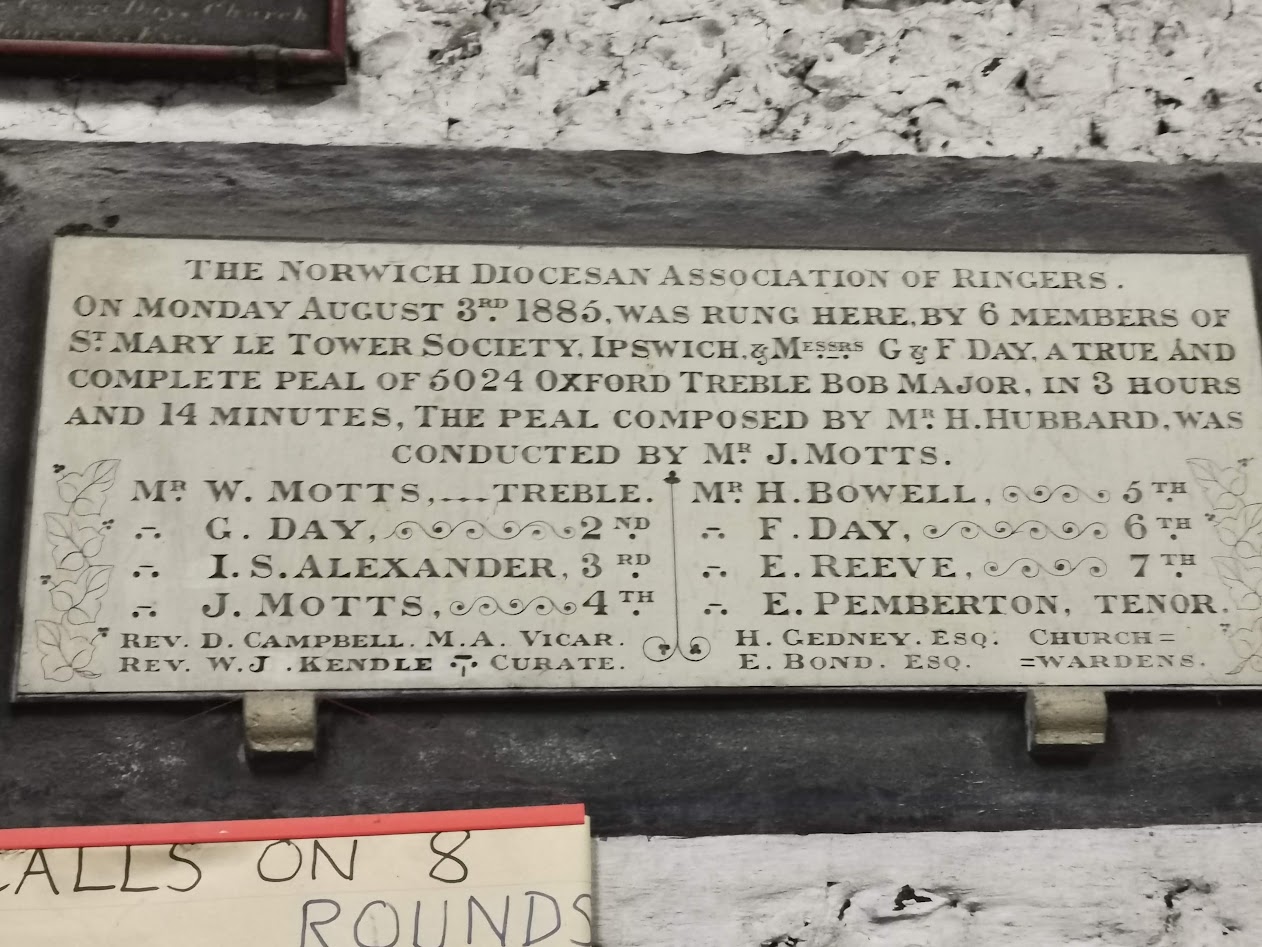 George Days Church
THE NORWICH DIOCESAN ASSOCIATION OF RINGERS.
ON MONDAY AUGUST 3RD 1885, WAS RUNG HERE, BY 6 MEMBERS OF
ST. MARY LE TOWER SOCIETY, IPSWICH, & MESSRS G & F DAY, A TRUE AND
COMPLETE PEAL OF 5024 OXFORD TREBLE BOB MAJOR, IN 3 HOURS
AND 14 MINUTES, THE PEAL COMPOSED BY MR. H. HUBBARD, WAS
CONDUCTED BY MR. J. MOTTS.
MR. W. MOTTS, .... TREBLE.
∴ G. DAY, 2ND
∴ I. S. ALEXANDER, 3RD
∴ J. MOTTS, 4TH
REV. D. CAMPBELL. M.A. VICAR.
REV. W. J. KENDLE ∴ CURATE.
MR. H. BOWELL, 5TH
∴ F. DAY, 6TH
∴ E. REEVE, 7TH
∴ E. PEMBERTON, TENOR.
H. GEDNEY. ESQ. CHURCH=
E. BOND. ESQ. =WARDENS.
CALLS ON 8
ROUNDS